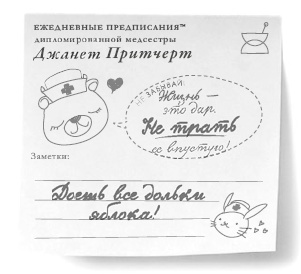 ЕЖЕДНЕВНЫЕ ПРЕДПИСАНИЯ™
дипломированной медсестры
Джанет Притчерт
НЕ ЗАБЫВАЙ:
Жизнь —
это дар.
Не трать
ее впустую!
Заметки:
Доешь все дольки
яблока!